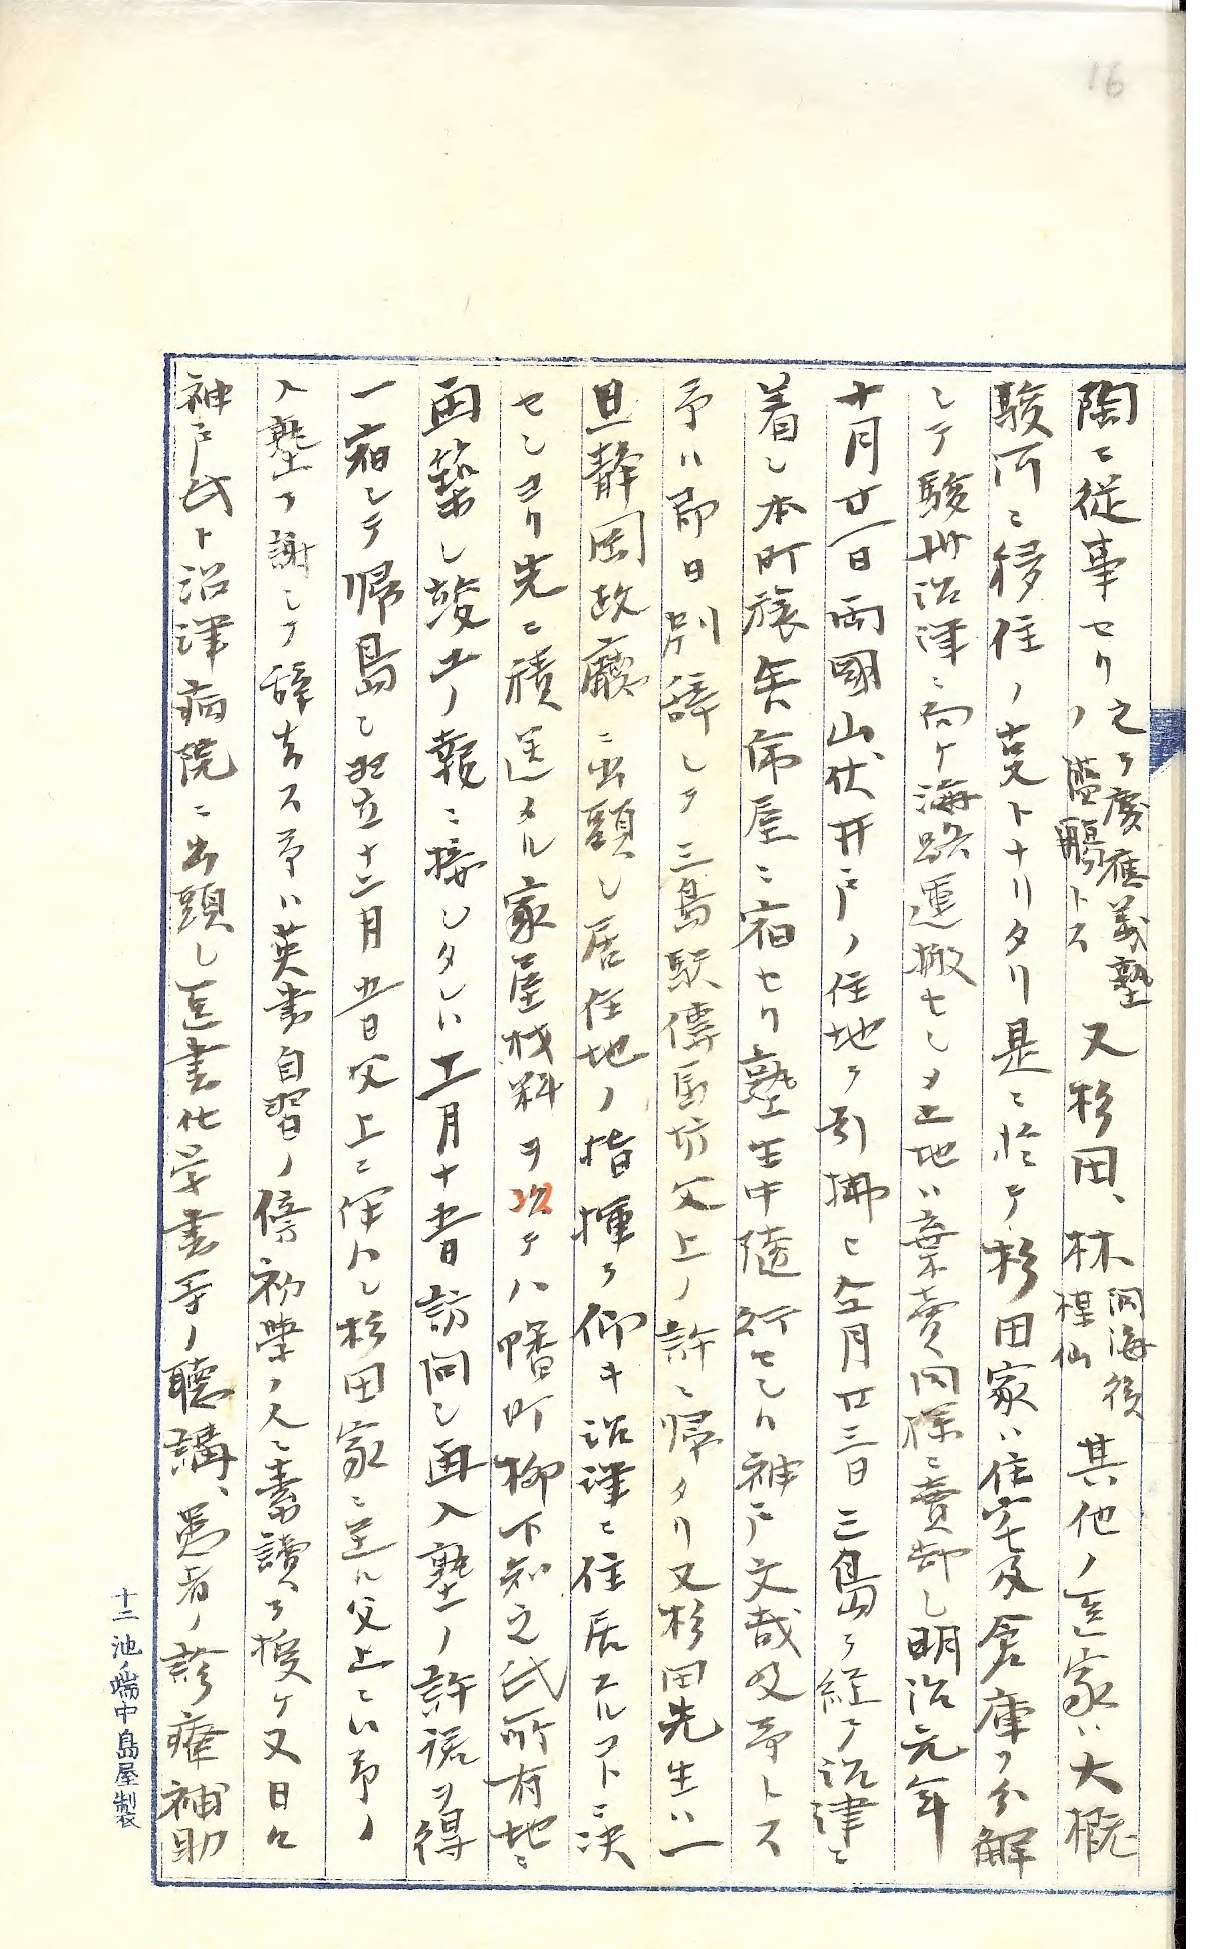 16
陶ニ従事セリ之ヲ慶應義塾ノ濫觴トス又杉田、林洞海後梅仙其他ノ医家ハ大概
駿河ニ移住ノ事トナリタリ是ニ於テ杉田家ハ住宅及倉庫ヲ分解
シテ駿州沼津ニ向ケ海路運搬セシメ土地ハ棄売同様ニ売却し明治元年
十月廿一日両国山伏井戸ノ住地ヲ引拂ヒ仝月廿三日三島ヲ経テ沼津ニ
着し本町旅舎布屋ニ宿セリ塾生中随行セシハ神戸文哉及予トス
予ハ即日別辞シテ三島駅傳馬坊父上ノ許ニ帰タリ又杉田先生ハ一
旦静岡政廳ニ出頭し居住地ノ指揮ヲ仰キ沼津ニ住居スルコトニ決
セシヨリ先ニ積送タル家屋材料ヲ以テハ幡町柳下知之氏所有地ニ
再築し竣工ノ報ニ接シタレハ十一月十五日訪問し再入塾ノ許諾ヲ得
一宿シテ帰島し翌十二月五日父上ニ伴ハレ杉田家ニ至ル父上ニハ予ノ
入塾ヲ謝シテ辞去ス予ハ英書自習ノ傍初学ノ人ニ素読ヲ授ケ又日々
神戸氏ト沼津病院ニ出頭し医書化学書等ノ聴講、患者ノ診療補助
十二池ノ端中島屋製